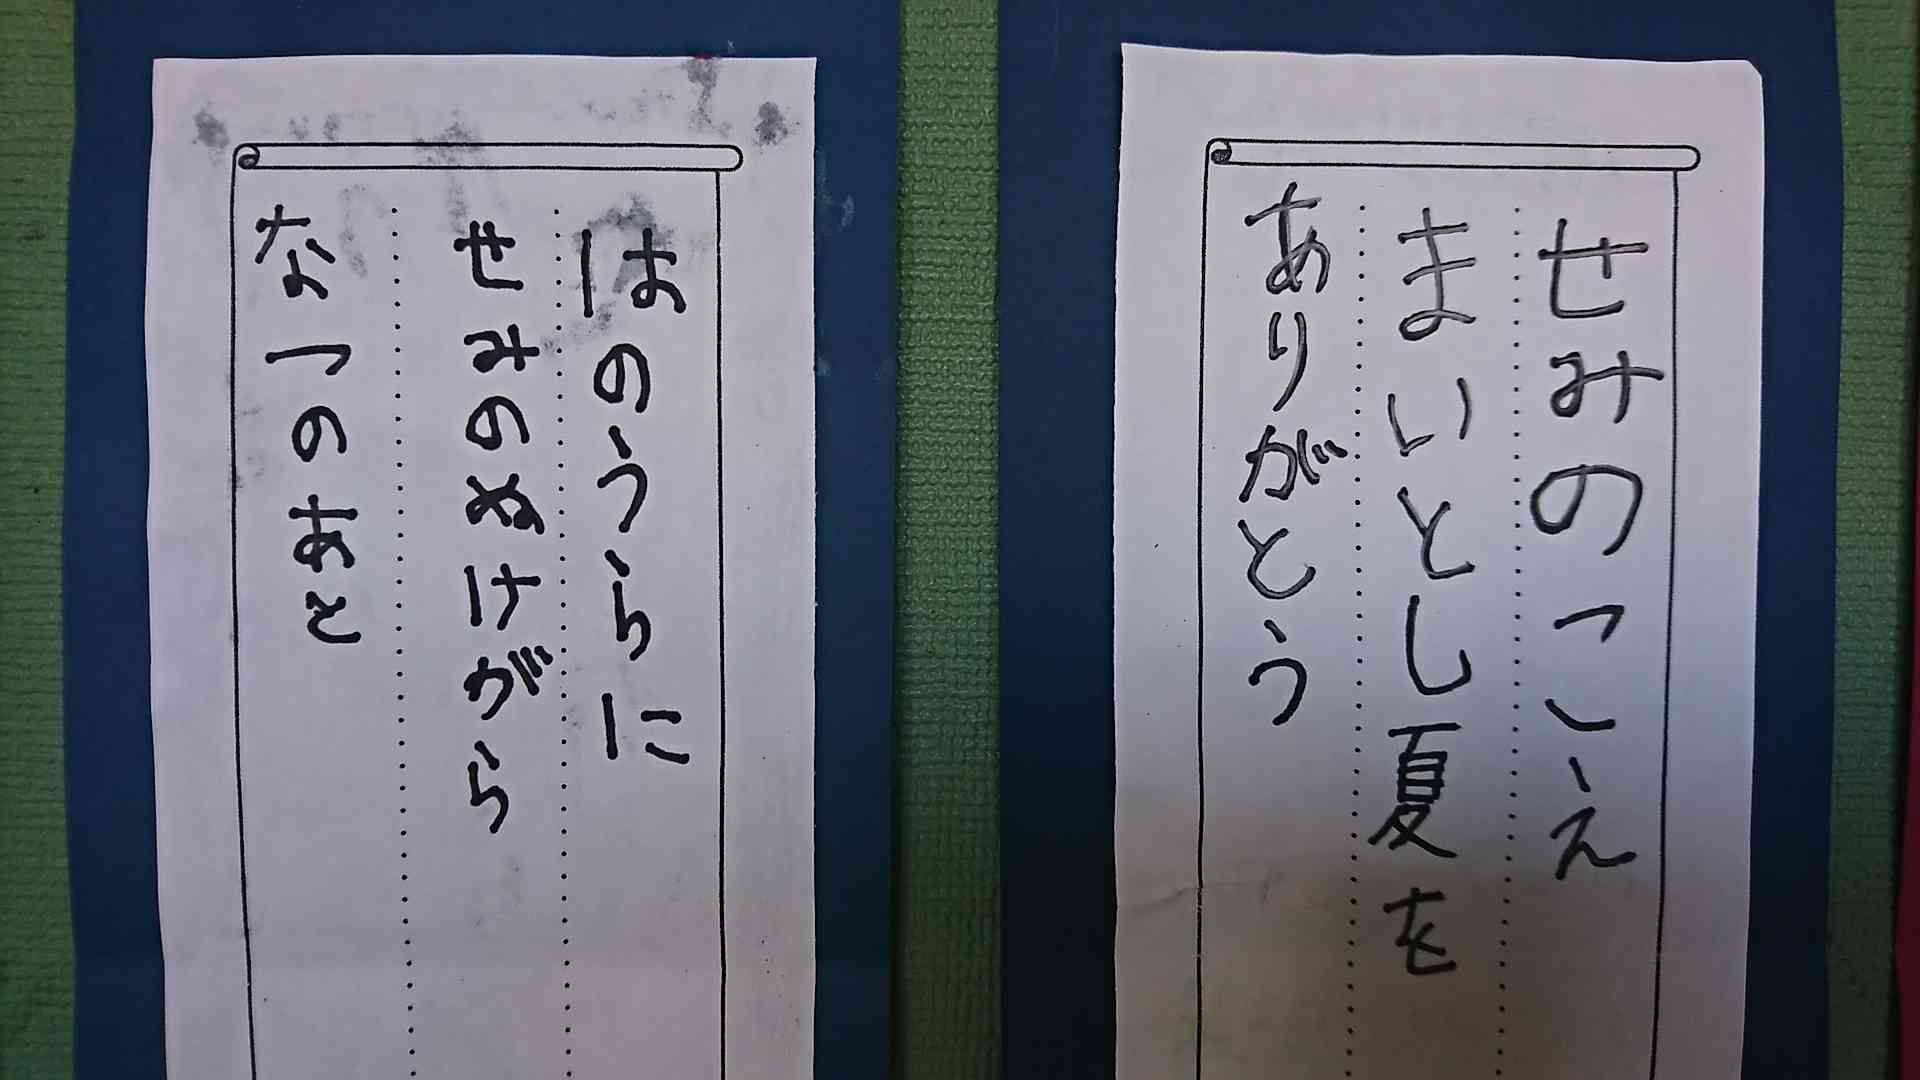 せみのこえ
まいとし夏を
ありがとう
はのうらに
せみのぬけがら
なつのあと